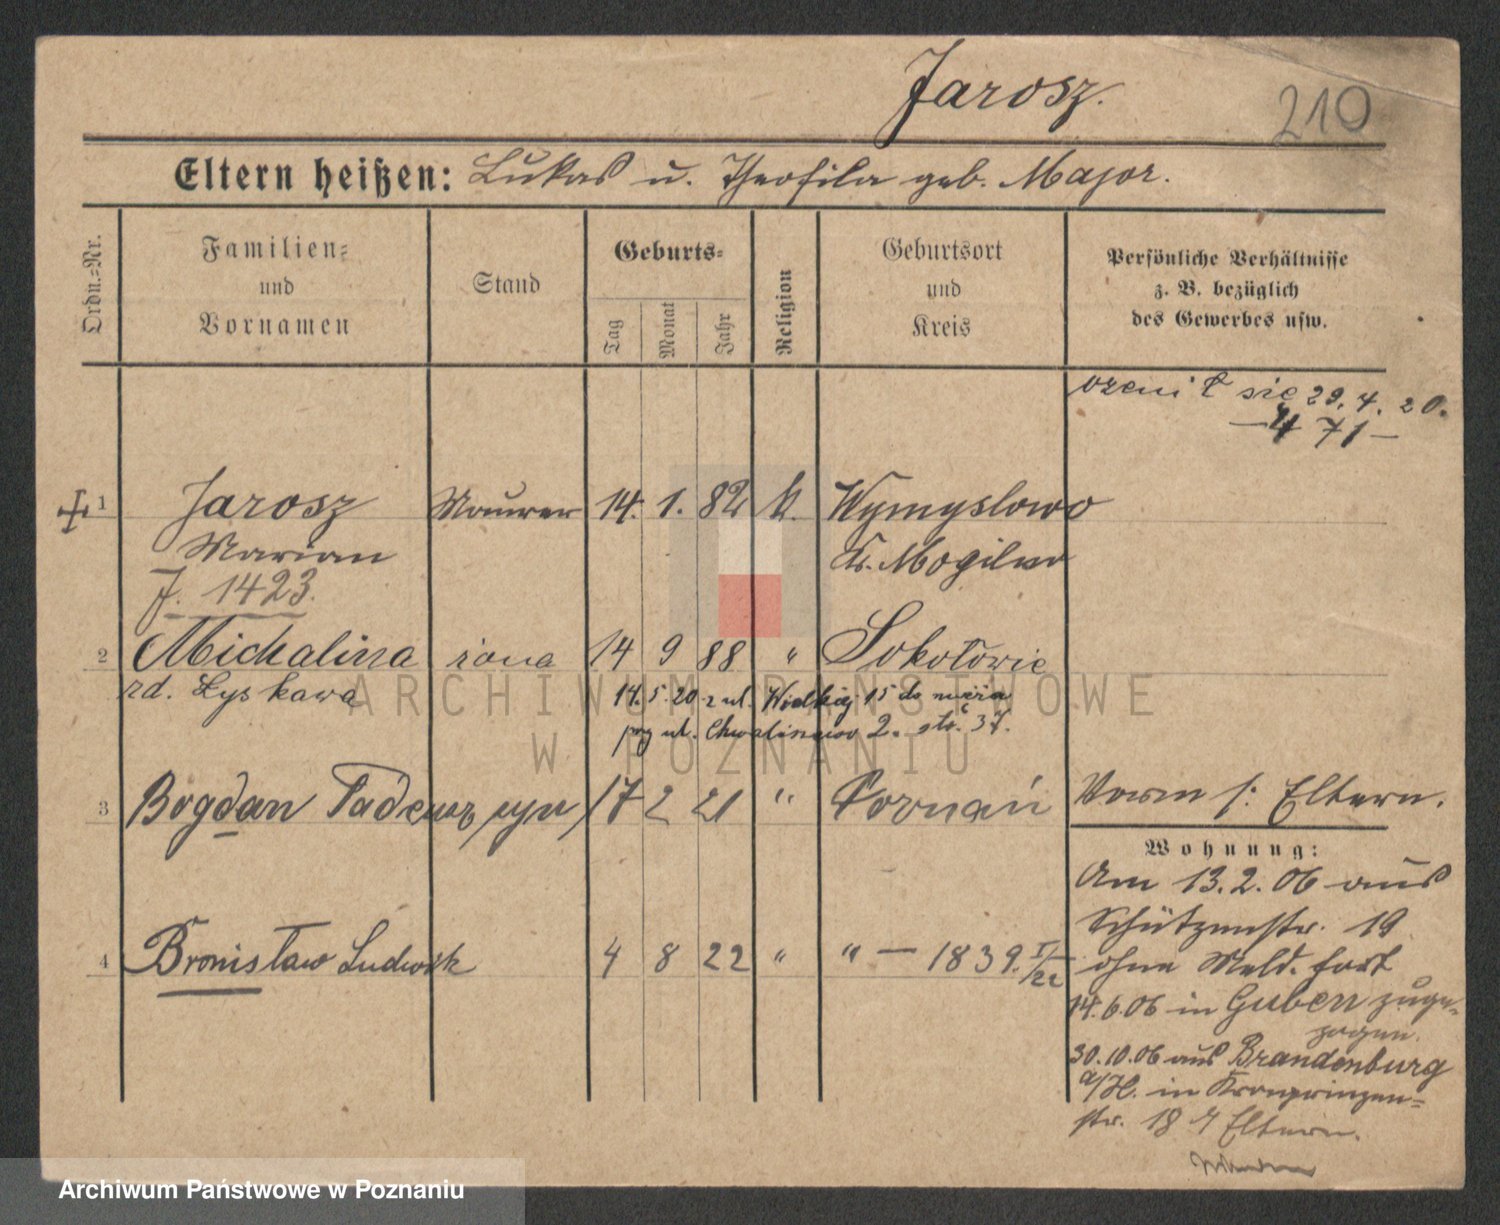 Jarosz.
210
Eltern heißen: Lukas u. Theofila geb. Major.
Ordn.=Nr.
Familien=
und
Vornamen
Stand
Geburts=
Tag
Monat
Jahr
Religion
Geburtsort
und
Kreis
Persönliche Verhältnisse
z. B. bezüglich
des Gewerbes usw.
ożenił się 29. 4. 20.
— 471 —
1 Jarosz Maurer 14. 1. 82 k. Wymyslowo
Marian Kr. Mogilno
J. 1423.
2 Michalina żona 14 9 88 " Sokołowie
rd. Łyskawa
14. 5. 20 z ul. Wielkiej 15 do męża
przy ul. 2. str. 37.
3 Bogdan Tadeusz syn 17 2 21 " Poznań
Vorm s: Eltern.
Wohnung:
Am 13. 2. 06 aus
Schützenstr. 19
ohne Meld. fort
14. 6. 06 in Guben zuge-
zogen.
30. 10. 06 aus Brandenburg
a/H. in Kronprinzen=
str. 18 Eltern.
4 Bronisław Ludwik 4 8 22 " " — 1839. I/22
ARCHIWUM PAŃSTWOWE
W POZNANIU
Archiwum Państwowe w Poznaniu